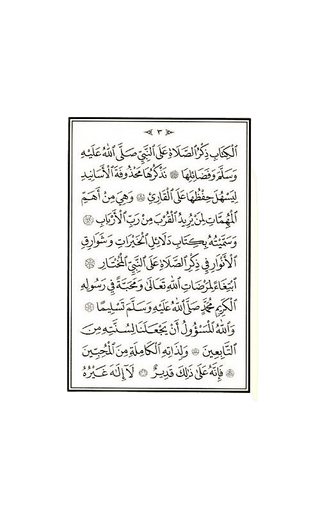 ٣
ٱلْكِتَابِ ذِكْرُ ٱلصَّلَاةِ عَلَى ٱلنَّبِيِّ صَلَّى ٱللَّهُ عَلَيْهِ
وَسَلَّمَ وَفَضَائِلِهَا ۞ نَذْكُرُهَا مَحْذُوفَةَ ٱلْأَسَانِيدِ
لِيَسْهُلَ حِفْظُهَا عَلَى ٱلْقَارِئِ ۞ وَهِيَ مِنْ أَهَمِّ
ٱلْمُهِمَّاتِ لِمَنْ يُرِيدُ ٱلْقُرْبَ مِنْ رَبِّ ٱلْأَرْبَابِ ۞
وَسَمَّيْتُهُ بِكِتَابِ دَلَائِلِ ٱلْخَيْرَاتِ وَشَوَارِقِ
ٱلْأَنْوَارِ فِي ذِكْرِ ٱلصَّلَاةِ عَلَى ٱلنَّبِيِّ ٱلْمُخْتَارِ ۞
ٱبْتِغَاءً لِمَرْضَاتِ ٱللَّهِ تَعَالَى وَمَحَبَّةً فِي رَسُولِهِ
ٱلْكَرِيمِ مُحَمَّدٍ صَلَّى ٱللَّهُ عَلَيْهِ وَسَلَّمَ تَسْلِيمًا ۞
وَٱللَّهُ ٱلْمَسْؤُولُ أَنْ يَجْعَلَنَا لِسُنَّتِهِ مِنَ
ٱلتَّابِعِينَ ۞ وَلِذَاتِهِ ٱلْكَامِلَةِ مِنَ ٱلْمُحِبِّينَ
۞ فَإِنَّهُ عَلَى ذَلِكَ قَدِيرٌ ۞ لَا إِلَهَ غَيْرُهُ